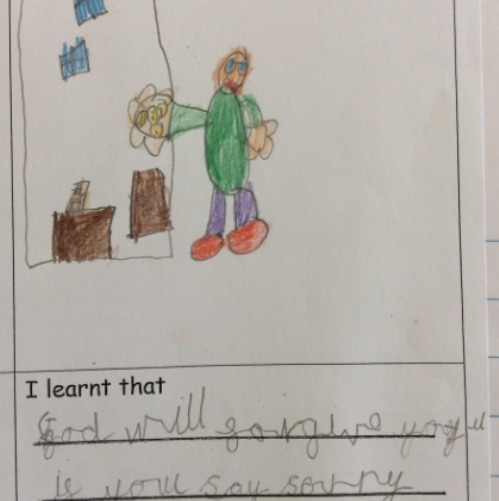 I learnt that
God will forgive you
if you say sorry